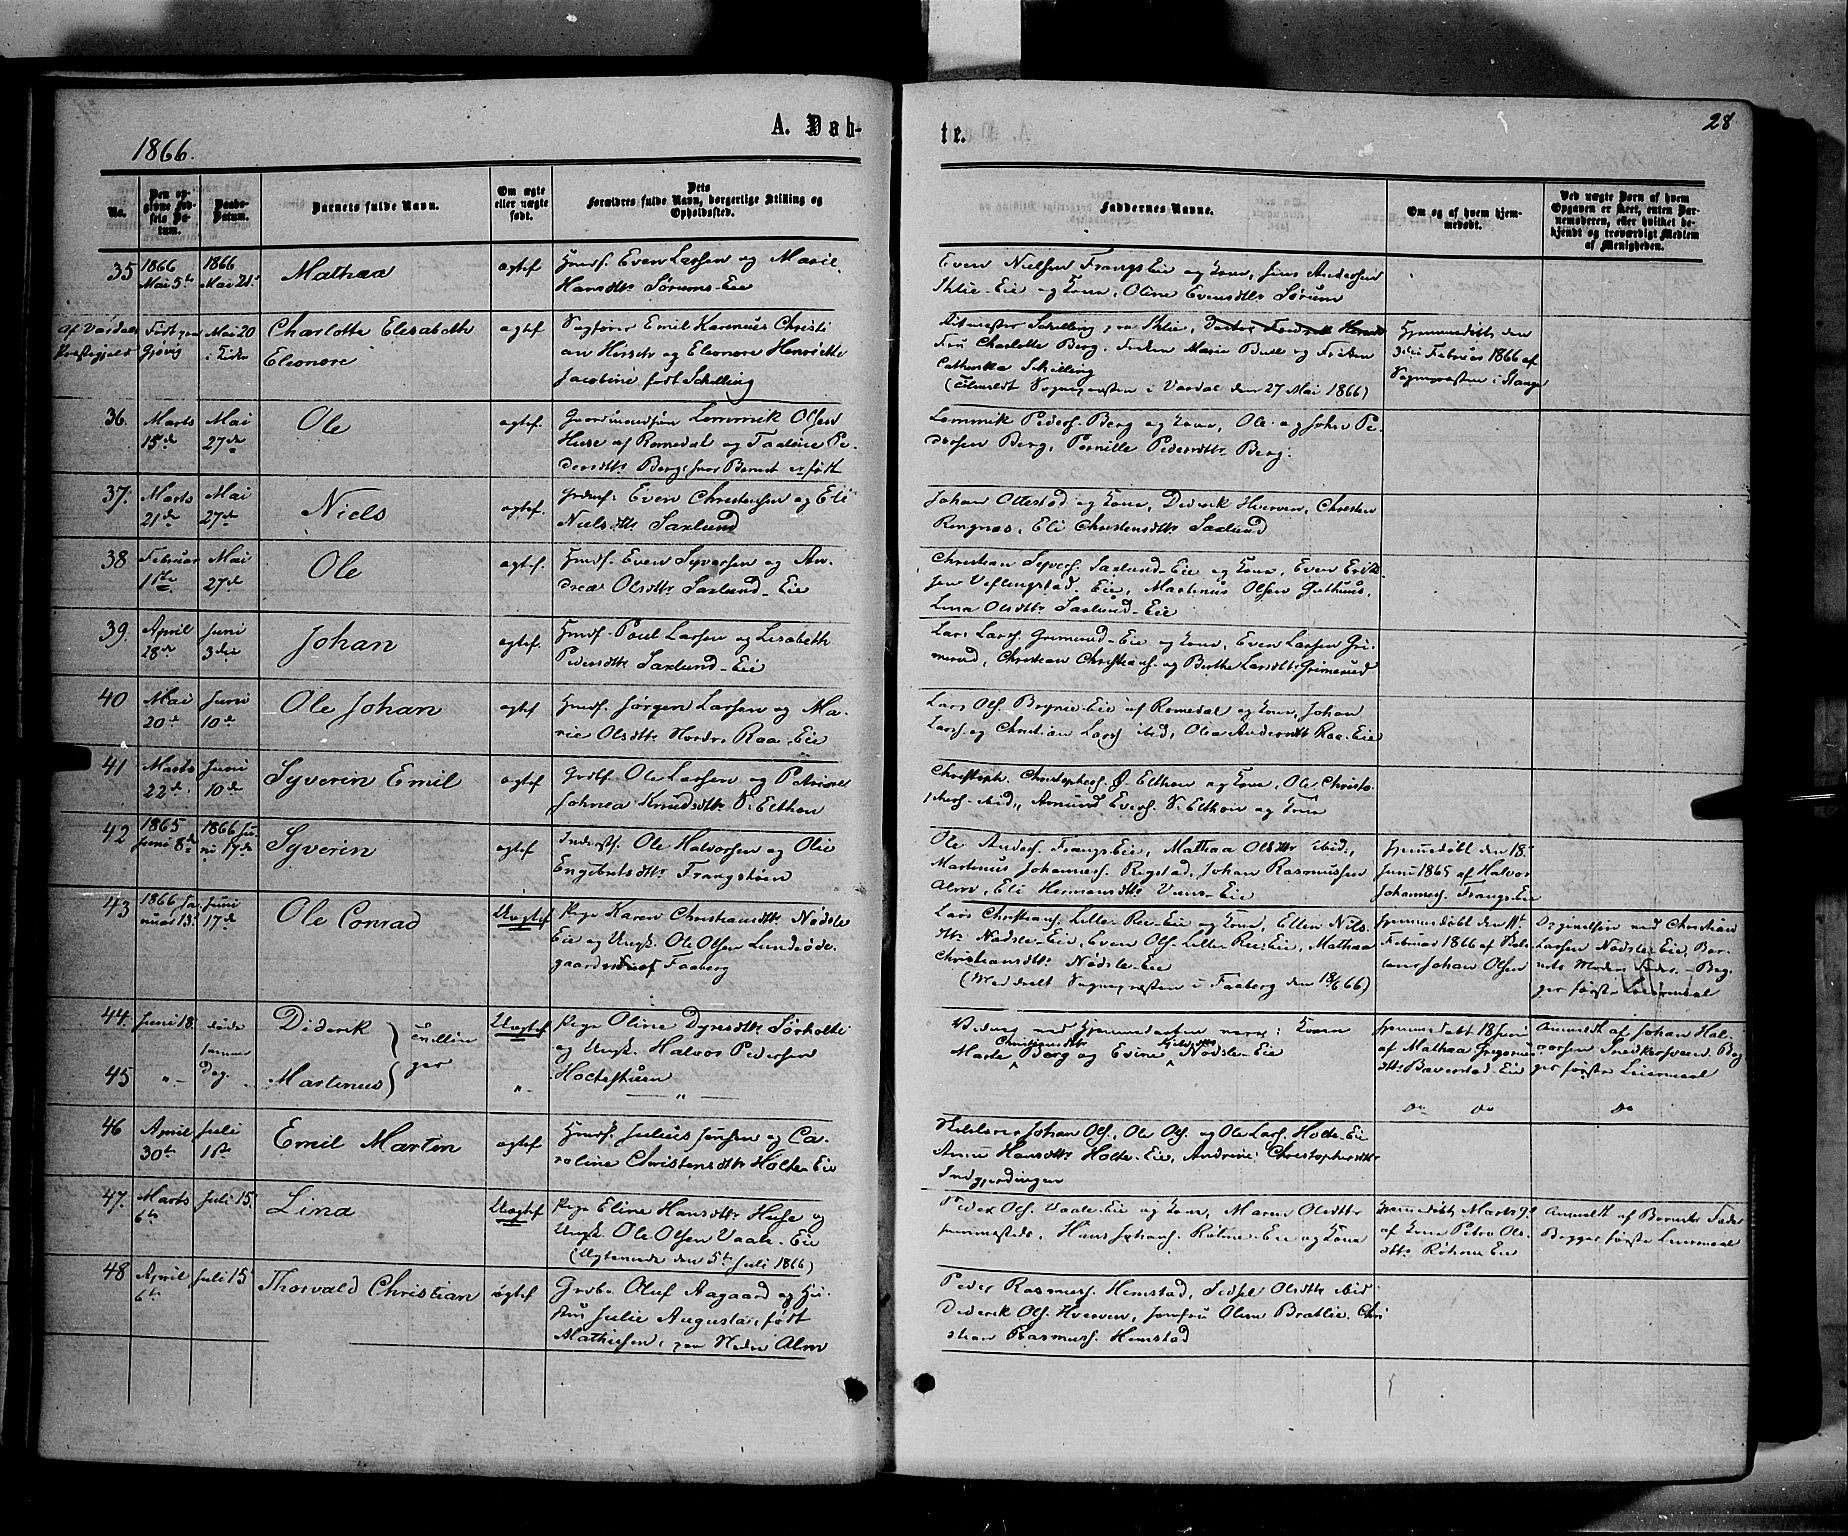 28
A. Døb-
te.
1866.
No.
Den op-
givne Fød-
sels Da-
tum.
Daabs-
Datum.
Barnets fulde Navn.
Om ægte
eller uægte
født.
Dets
Forældres fulde Navn, borgerlige Stilling og
Opholdssted.
Faddernes Navne.
Om og af hvem hjem-
medøbt.
Ved uægte Børn af hvem
Opgaven er skeet, enten Bar-
nemoderen, eller hvilket be-
kjendt og troværdigt Medlem
af Menigheden.
35
1866
Mai 5te
1866
Mai 21
Mathea
ægtef
Huusf. Even Larsen og Marie
Hansdtr Sørums-Eie
Even Nielsen Frangs Eie og Kone, Jens Andersen
Sklie-Eie og Kone, Oline Evensdtr Sørum
af Vardal
Præstegjeld
Født paa
Gjøvig
Mai 20
i Kirke
Charlotte Elisabeth
Eleonore
ægtef
Sagfører Emil Rasmus Christi
an Hirsch og Eleonore Henriette
Jacobine født Schilling
Ritmester Schilling
Fru Charlotte Berg, Frøken Marie Bull og Frøken
Cathinka Schilling
(Anmeldt Sognepræsten i Vardal den 27 Mai 1866)
Hjemmedøbt den
3die Februar 1866 af
Sognepræsten i Stange
36.
Marts
15de
Mai
27de
Ole
ægtef.
Gaardmandssøn Lemmik Olsen
Huse af Romedal og Pe-
dersdtr Berg, hvor Barnet er født
Lemmik Peders. Berg og Kone, Ole og Johan Pe-
dersen Berg, Pernille Pedersdtr Berg.
37.
Marts
21de
Mai
27de
Niels
ægtef.
Even Christensen og Eli
Nielsdtr Saxlund
Johan Ottestad og Kone, Diderik Hverven, Christen
Ringnes, Eli Christensdtr Saxlund
38
Februar
1ste
Mai
27de
Ole
ægtef.
Huusf. Even Syversen og An-
drea Olsdtr Saxlund-Eie
Christian Syvers. Saxlund-Eie og Kone, Even Erik-
sen Vestingstad Eie, Martinus Olsen Guthuus,
Lina Olsdtr Saxlund-Eie
39.
April
28de
Juni
3die
Johan
ægtef.
Huusf. Poul Larsen og Lisabeth
Pedersdtr Saxlund-Eie
Lars Larss. Grimerud-Eie og Kone, Even Larsen Gri-
merud, Christian Christians. og Berthe Larsdtr Grimerud
40
Mai
20de
Juni
10de
Ole Johan
ægtef
Huusf. Jørgen Larsen og Ma-
rie Olsdtr Nordre Raa-Eie
Lars Ols. Brynie-Eie af Romedal og Kone, Johan
Larss. og Christian Larss. ibid, Olea Andersdtr Raa-Eie
41
Marts
22de
Juni
10de
Syverin Emil
ægtef
Ole Larsen og Petrine
Johnea Knudsdtr V. Elthon
Christoph. Christophers. Ø. Elthon og Kone, Ole Christo-
phers. ibid., Amund Evers. V. Elthon og Kone
42
1865
Juni 8de
1866 Ju-
ni 17de
Syverin
ægtef
Inderst. Ole Halvorsen og Olie
Engebretsdtr Frangstøen
Ole Anders. Frangs Eie, Mathea Olsdtr ibid.,
Martinus Johannes. Rogstad, Johan Rasmussen
Alm, Eli Hermansdtr Vans-Eie
Hjemmedøbt den 18
Juni 1865 af Halvor
Johannes. Frangs Eie
43
1866 Ja-
nuar 13
Juni
17de
Ole Conrad
Uægtef
Pige Karen Christiansdtr Nødsle
Eie og Ungk. Ole Olsen Lundsøde-
gaard af Faaberg
Lars Christians. Lille-Ree-Eie og Kone, Ellen Nils-
dtr Nødsle-Eie, Even Ols. Lille-Ree-Eie, Mathea
Christiansdtr Nødsle-Eie
(Meddelt Sognepræsten i Faaberg den 18/6 66)
Hjemmedøbt den 11te
Februar 1866 af
Johan Olsen
ved Christian
Larsen Nødsle-Eie, Bar-
nets Moders Fader. Beg-
ges første Leiermaal
44.
Juni 18.
døde
samme
Dag.
Diderik
Tvillin-
ger
Uægtef
Pige Oline Dyresdtr Sørholte
og Ungk. Halvor Pedersen
Holtestuen
Vidner ved Hjemmedaaben vare: Konen
Marte Christiansdtr Berg og Evine Nødsle-Eie
Hjemmedøbt 18 Juni
af Mathea Gregorius-
dtr Baverstad-Eie
Anmeldt af Johan Hal-
vorsen Snekkersveen. Beg-
ges første Leiermaal
45
" -
Martinus
" -
— " —
do do
do
46
April
30te
Juli
1ste
Emil Martin
ægtef
Huusf. Julius Jensen og Ca-
roline Christensdtr Holte-Eie
Johan Ols., Ole Ols. og Ole Larss. Holte-Eie
Anne Hansdtr Holte-Eie, Andrine Christophersdtr
Indgjerdingen
47.
Marts
6te
Juli 15.
Lina
Uægtef
Pige Eline Hansdtr Huse og
Ungk. Ole Olsen Vaale-Eie
(Ægteviede den 5te Juli 1866)
Peder Ols. Vaale-Eie og Kone, Maren Olsdtr
Hans Johans. Røhne-Eie og Kone
Hjemmedøbt Marts 9de
af Kone Petra Ols-
dtr Røhne Eie
Anmeldt af Barnets Fader
Begges første Leiermaal
48
April
6te
Juli 15
Thorvald Christian
ægtef
Grdbr. Oluf Aagaard og Hu-
stru Julie Augusta, født
Mathiesen, paa Nedre Alm
Peder Rasmuss. Hemstad, Sidsel Olsdtr ibid
Diderik Ols. Hverven, Jomfru Oline Brablie, Chri-
stian Rasmuss. Hemstad